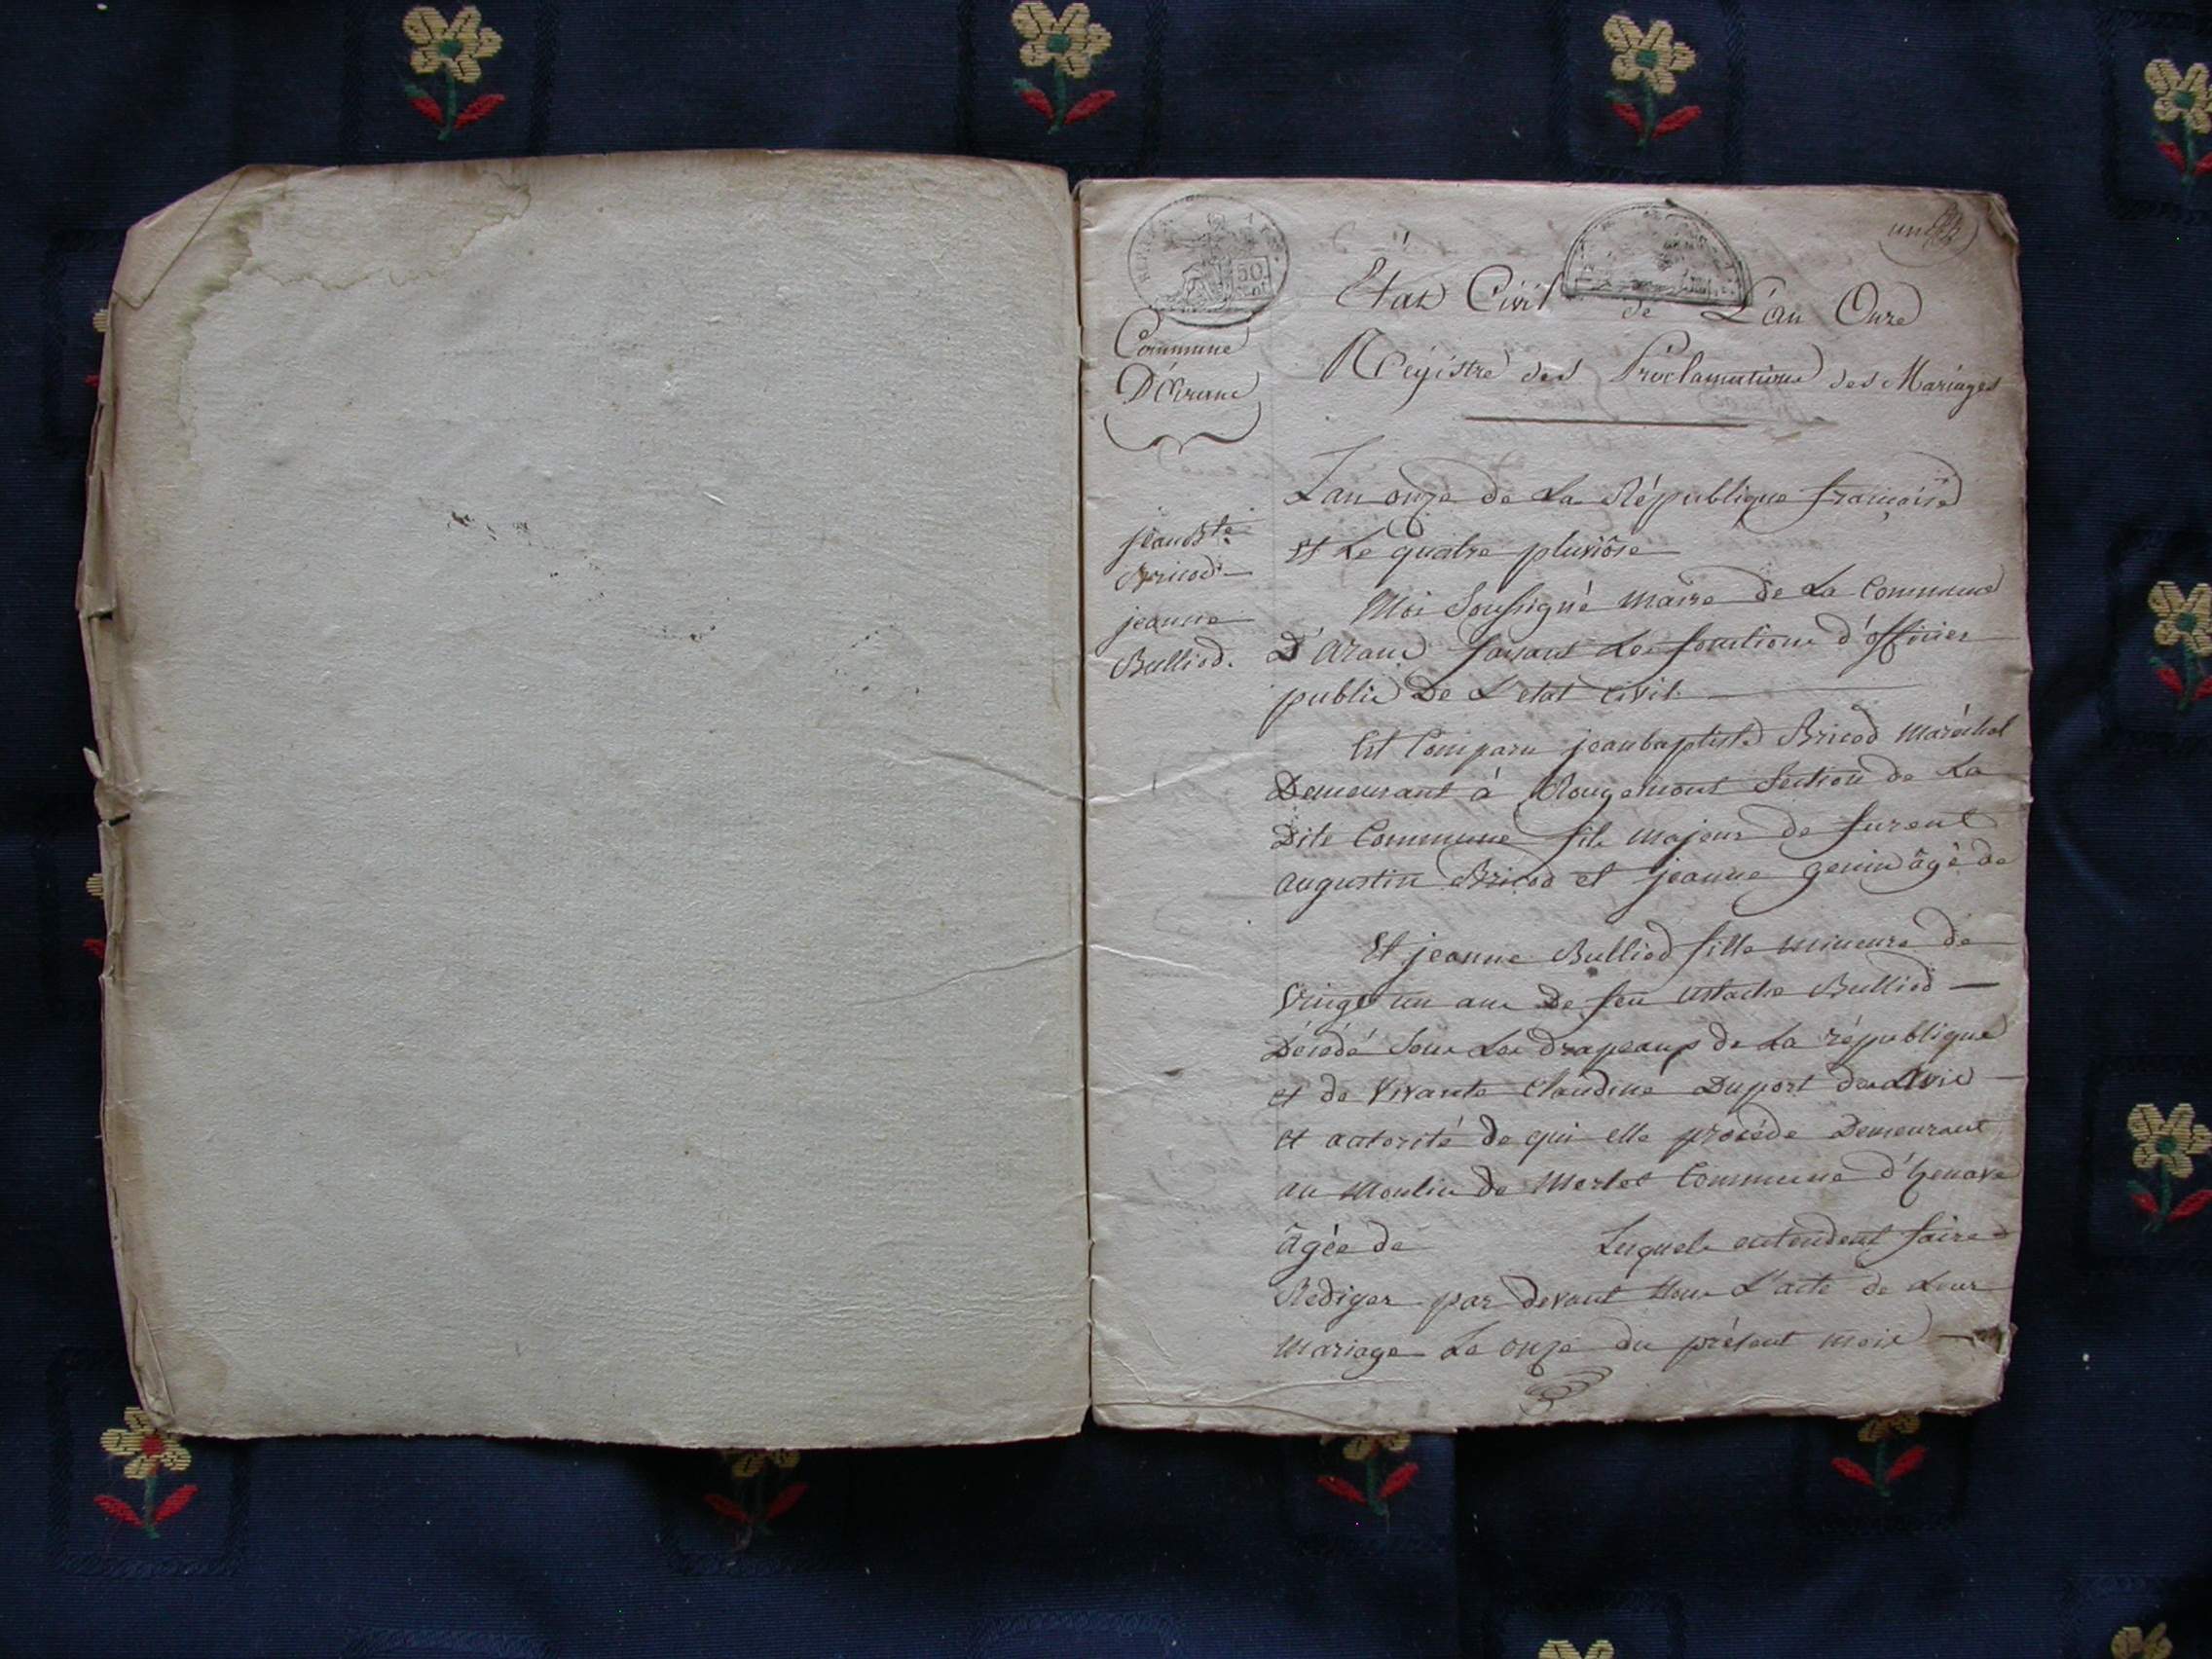 un
50
Cent
Etat Civil de L'an Onze
Commune
D'Arane
Régistre des Proclamations des Mariages
L'an onze de La République française
et Le quatre pluviôse
jean Bte
Bricod
jeanne
Bulliod.
Moi Soussigné maire de La Commune
D'Aranc faisant Les fonctions d'officier
public De L'etat civil.
Est Comparu jeanbaptiste Bricod maréchal
Demeurant à Rougemont Section de La
Dite Commune fils majeur de furent
augustin Bricod et jeanne genin âgé de
Et jeanne Bulliod fille mineure de
Vingt un ans De feu Ustache Bulliod
Décédé Sous Les drapeaux de La république
et de Vivante Claudine Duport de L'avis
et autorité de qui elle procéde Demeurant
au Moulin de Merlet Commune d'
âgée de Lesquels entendent faire
Rediger par devant Nous L'acte de Leur
mariage Le onze du présent mois